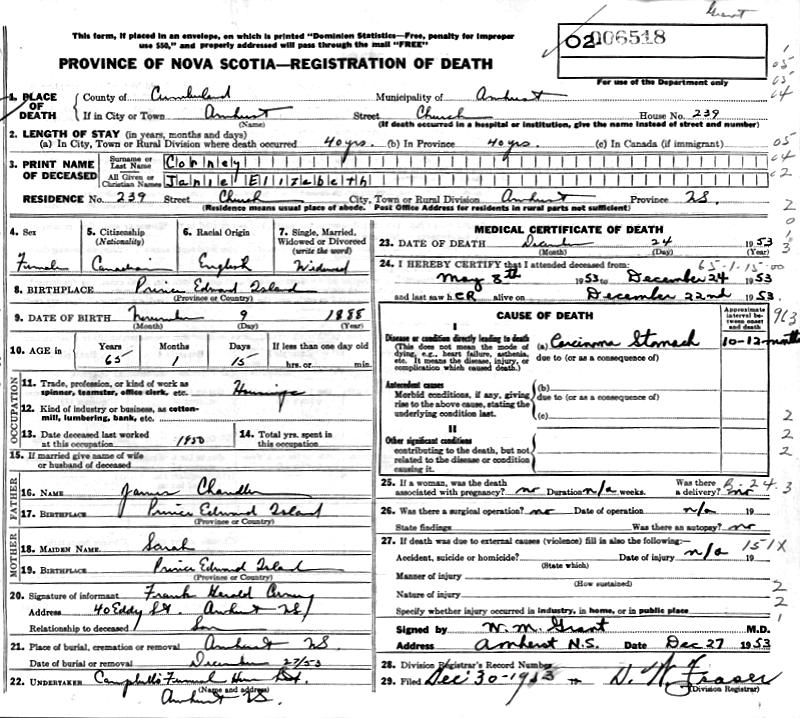 Grant
This form, if placed in an envelope, on which is printed "Dominion Statistics—Free, penalty for improper
use $50," and properly addressed will pass through the mail "FREE"
02 006518
PROVINCE OF NOVA SCOTIA—REGISTRATION OF DEATH
For use of the Department only
1. PLACE OF DEATH
County of Cumberland Municipality of Amherst
If in City or Town Amherst Street Church House No. 239
(Name) (If death occurred in a hospital or institution, give the name instead of street and number)
2. LENGTH OF STAY (in years, months and days)
(a) In City, Town or Rural Division where death occurred 40 yrs. (b) In Province 40 yrs. (c) In Canada (if immigrant)
3. PRINT NAME OF DECEASED
Surname or Last Name Corney
All Given or Christian Names Janie Elizabeth
RESIDENCE No. 239 Street Church City, Town or Rural Division Amherst Province N.S.
(Residence means usual place of abode. Post Office Address for residents in rural parts not sufficient)
4. Sex Female
5. Citizenship (Nationality) Canadian
6. Racial Origin English
7. Single, Married, Widowed or Divorced (write the word) Widowed
8. BIRTHPLACE Prince Edward Island
(Province or Country)
9. DATE OF BIRTH November 9 1888
(Month) (Day) (Year)
10. AGE in Years 65 Months 1 Days 15 If less than one day old hrs. or min.
OCCUPATION
11. Trade, profession, or kind of work as spinner, teamster, office clerk, etc.
12. Kind of industry or business, as cotton-mill, lumbering, bank, etc.
13. Date deceased last worked at this occupation 1950
14. Total yrs. spent in this occupation
15. If married give name of wife or husband of deceased
FATHER
16. NAME James Chandler
17. BIRTHPLACE Prince Edward Island
(Province or Country)
MOTHER
18. MAIDEN NAME Sarah
19. BIRTHPLACE Prince Edward Island
(Province or Country)
20. Signature of informant Frank Herald
Address 40 Eddy St. Amherst NS
Relationship to deceased Son
21. Place of burial, cremation or removal Amherst NS.
Date of burial or removal December 27/53
22. UNDERTAKER Campbell's Funeral
(Name and address)
Amherst NS.
MEDICAL CERTIFICATE OF DEATH
23. DATE OF DEATH December 24 1953
(Month) (Day) (Year)
24. I HEREBY CERTIFY that I attended deceased from: 65-1-15-00
May 8th 1953 to December 24 1953
and last saw hER alive on December 22nd 1953.
CAUSE OF DEATH
Approximate interval between onset and death
I
Disease or condition directly leading to death (a) Carcinoma Stomach 10-12 months
(This does not mean the mode of dying, e.g., heart failure, asthenia, etc. It means the disease, injury, or complication which caused death.)
due to (or as a consequence of)
Antecedent causes (b)
Morbid conditions, if any, giving rise to the above cause, stating the underlying condition last.
due to (or as a consequence of)
(c)
II
Other significant conditions
contributing to the death, but not related to the disease or condition causing it.
25. If a woman, was the death associated with pregnancy? no Duration n/a weeks. Was there a delivery? no
26. Was there a surgical operation? no Date of operation n/a 19
State findings Was there an autopsy? no
27. If death was due to external causes (violence) fill in also the following: 151X
Accident, suicide or homicide? Date of injury n/a 19
(State which)
Manner of injury
(How sustained)
Nature of injury
Specify whether injury occurred in industry, in home, or in public place
Signed by W. M. Grant M.D.
Address Amherst N.S. Date Dec 27 1953
28. Division Registrar's Record Number
29. Filed Dec 30-1953 D. W. Fraser
(Division Registrar)